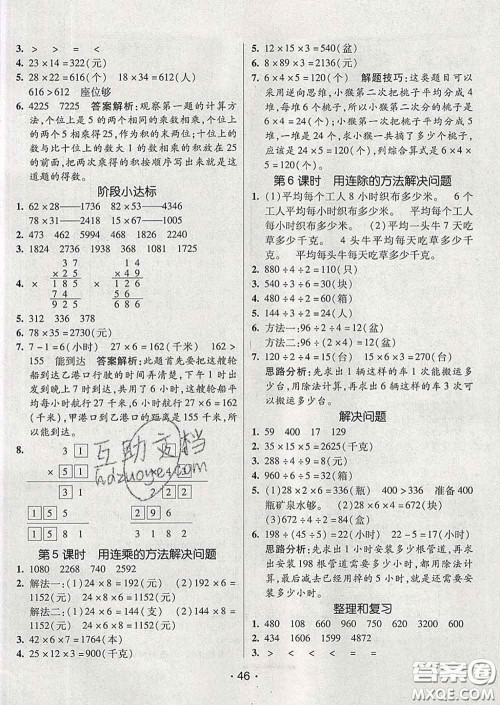 3. > > = <
4. 23×14=322(元)
5. 28×22=616(个) 18×34=612(个)
616>612 座位够
6. 4225 7225 答案解析:观察第一题的计算方
法,个位上的数是5的两个相同的两位数相乘,个位上
的5和5相乘得25,作为积的末两位;十位上的数
与比十位上的数大1的数相乘得到积的前两位或前
三位,把两次乘得的积按顺序写出来就是这
道题的得数。
阶段小达标
1. 62×28——1736 82×53——4346
78×31——2418 95×54——5130
2. 473 462 5994 2790
3. 1824 2736 1938 368 675 984
4.
3 7
× 2 5
1 8 5
7 4
9 2 5
4 5
× 2 6
2 7 0
9 0
1 1 7 0
5. 312 336 378
6. 78×35=2730(元)
7. 7-1=6(小时) 27×6=162(千米) 162>
155 能到达 答案解析:此题首先要把这艘轮
船到达乙港口行驶的时间弄清楚,下午1时出发,
到晚上7时到达,共用了6小时,这艘轮船平均每
小时行27千米,6小时就可以行27×6=162(千
米),甲港口到乙港口的距离是155千米,所以能
到达。
8.
3 1
× 5 1
3 1
1 5 5
1 5 8 1
6 1
× 5 2
1 2 2
3 0 5
3 1 7 2
第5课时 用连乘的方法解决问题
1. 1080 2268 740 2592
2. 解法一:(1)24×8=192(元) (2)192×6=
1152(元)
解法二:(1)24×6=144(支) (2)144×8=
1152(元)
3. 42×6×7=1764(本)
4. 25×12×3=900(千克)
5. 12×15×3=540(盆)
6. 8×89×3=2136(元)
7. 6×4×5=120(个) 解题技巧:这类题目可
以采用逆向思维,小猴第二次把桃子平均分成4
堆,每堆有6个,那么小猴第二次分的桃子有
6×4=24(个);小猴第一次把桃子平均分成5
堆,求小猴一共有多少个桃子,就是求5个24是
多少,列综合算式是6×4×5=120(个)。
第6课时 用连除的方法解决问题
1. (1)平均每个工人8小时织布多少米。 平均每
个工人每小时织布多少米。 6个工人每小时织
布多少米。 平均每个工人每小时织布多少米。
(2)平均一头牛7天吃草多少千克。 平均每头
牛每天吃草多少千克。 4头牛每天吃草多少千
克。 平均每头牛每天吃草多少千克。
2. 880÷4÷2=110(只)
3. 540÷3÷6=30(块)
4. 960÷4÷5=48(箱)
5. 144÷3÷2=24(元)
6. 方法一:96÷2÷4=12(盆)
方法二:96÷4÷2=12(盆)
7. 90÷3÷2=15(台) 15×4×2=120(台)
思路分析:先求出1辆这样的车1次能搬运多
少,用除法计算,再求出6辆这样的车3次可以
搬运多少。
解决问题
1. 59 400 17 129
2. 35×15×5=2625(千克)
3. 288÷4÷9=8(块)
4. 960÷6÷5=32(箱)
5. (1)28×2×6=336(瓶) 400>336 准备400
瓶矿泉水够。 (2)28×6×4=672(元)
(3)672÷6÷2÷28=2(瓶)
6. 198÷(45÷5)=22(小时) 22-5=17(小时)
思路分析:先求出1小时安装多少根管道,再求
出安装198根管道共需要多少小时,用除法计算,
最后减去已经安装了的5小时,就是还需要安
装多少小时。
整理和复习
1. 480 108 660 750 620 3200 600
900 880
2. > < < < < =
· 46 ·
互助文档
hdzuoye.com
答案圈
MXQE.COM